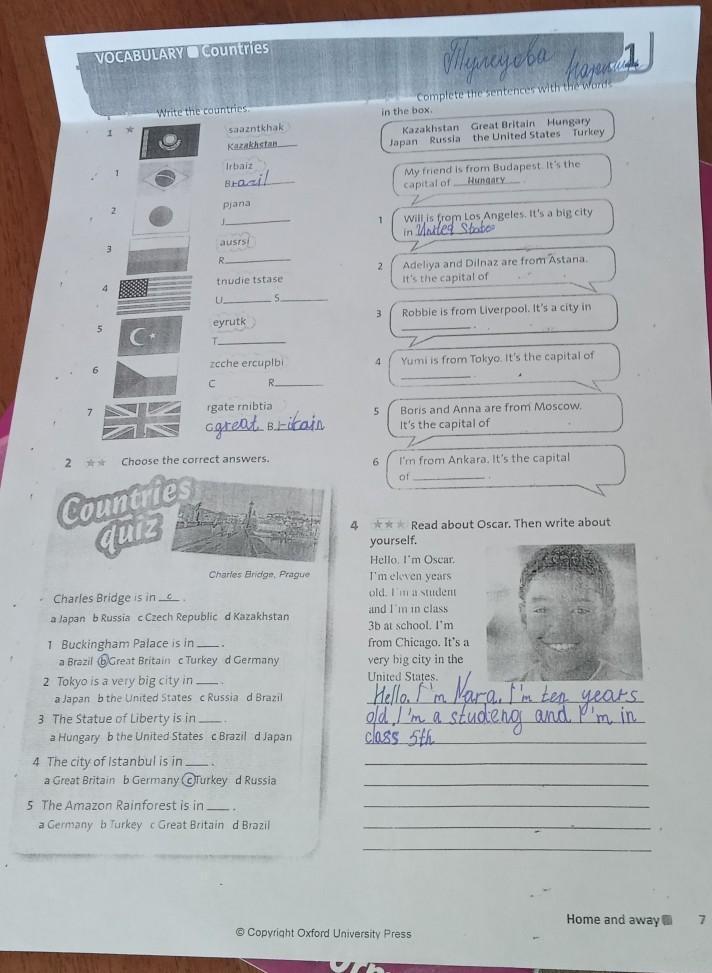 VOCABULARY Countries
Тулеуова
1
Write the countries.
1 ★
saazntkhak
Kazakhstan
1
lrbaiz
Brazil
2
pjana
J
3
ausrsi
R
4
tnudie tstase
U S
5
eyrutk
T
6
zcche ercuplbi
C R
7
rgate rnibtia
Ggreat Britain
2 ★★ Choose the correct answers.
Countries
quiz
Charles Bridge, Prague
Charles Bridge is in c .
a Japan b Russia c Czech Republic d Kazakhstan
1 Buckingham Palace is in ____ .
a Brazil b Great Britain c Turkey d Germany
2 Tokyo is a very big city in ____ .
a Japan b the United States c Russia d Brazil
3 The Statue of Liberty is in ____ .
a Hungary b the United States c Brazil d Japan
4 The city of Istanbul is in ____ .
a Great Britain b Germany c Turkey d Russia
5 The Amazon Rainforest is in ____ .
a Germany b Turkey c Great Britain d Brazil
Complete the sentences with the words
in the box.
Kazakhstan Great Britain Hungary
Japan Russia the United States Turkey
My friend is from Budapest. It's the
capital of Hungary .
1 Will is from Los Angeles. It's a big city
in United States
2 Adeliya and Dilnaz are from Astana.
It's the capital of
3 Robbie is from Liverpool. It's a city in
____ .
4 Yumi is from Tokyo. It's the capital of
____ .
5 Boris and Anna are from Moscow.
It's the capital of
6 I'm from Ankara. It's the capital
of ____ .
4 ★★★ Read about Oscar. Then write about
yourself.
Hello. I'm Oscar.
I'm eleven years
old. I'm a student
and I'm in class
3b at school. I'm
from Chicago. It's a
very big city in the
United States.
Hello. I'm Nara. I'm ten years
old. I'm a studeng and I'm in
class 5th
Home and away 7
© Copyright Oxford University Press